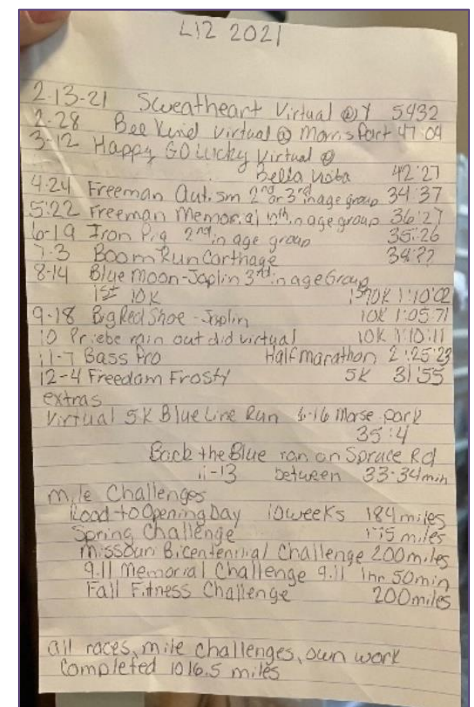 LIZ 2021
2-13-21 Sweatheart Virtual @ Y 5432
2-28 Bee Kind Virtual @ Morris Port 47:09
3-12 Happy GO Lucky Virtual @
Bella Vista 42:27
4-24 Freeman Autism 2nd or 3rd in age group 34:37
5:22 Freeman Memorial in age group 36:27
6-19 Iron Pig 2nd in age group 35:26
7-3 Boom Run Carthage 34:??
8-14 Blue Moon-Joplin 3rd in age Group
1st 10K 1st 10K 1:10:02
9-18 Big Red Shoe - Joplin 10K 1:05:71
10 Priebe rain out did virtual 10K 1:10:11
11-7 Bass Pro Half marathon 2:25:23
12-4 Freedom Frosty 5K 31:55
extras
Virtual 5K Blue Line Run 6-16 Morse park
35:4
Back the Blue ran on Spruce Rd
11-13 between 33-34min
mile Challenges
Road to Opening Day 10 weeks 184 miles
Spring Challenge 175 miles
Missouri Bicentennial Challenge 200 miles
9.11 Memorial Challenge 9.11 1hr 50min
Fall Fitness Challenge 200 miles
all races, mile challenges, own work
Completed 1016.5 miles